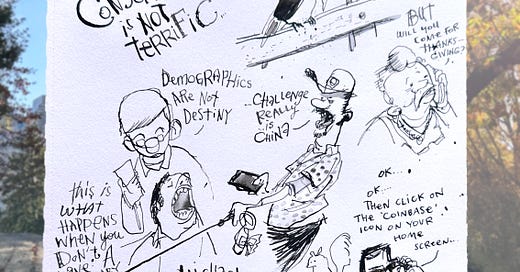 is NOT
TERRiFiC..
DEMOGRAPHICS
ARE NOT
DESTINY
..CHALLENGE
REALLY
is
CHINA
BUT
WILL YOU
COME FOR
THANKS--
GIVING?
this is
WHAT
HAPPENS
WHEN YOU
DON'T A
OK...
OK...
THEN CLICK ON
THE 'COINBASE'
ICON ON YOUR
HOME
SCREEN...